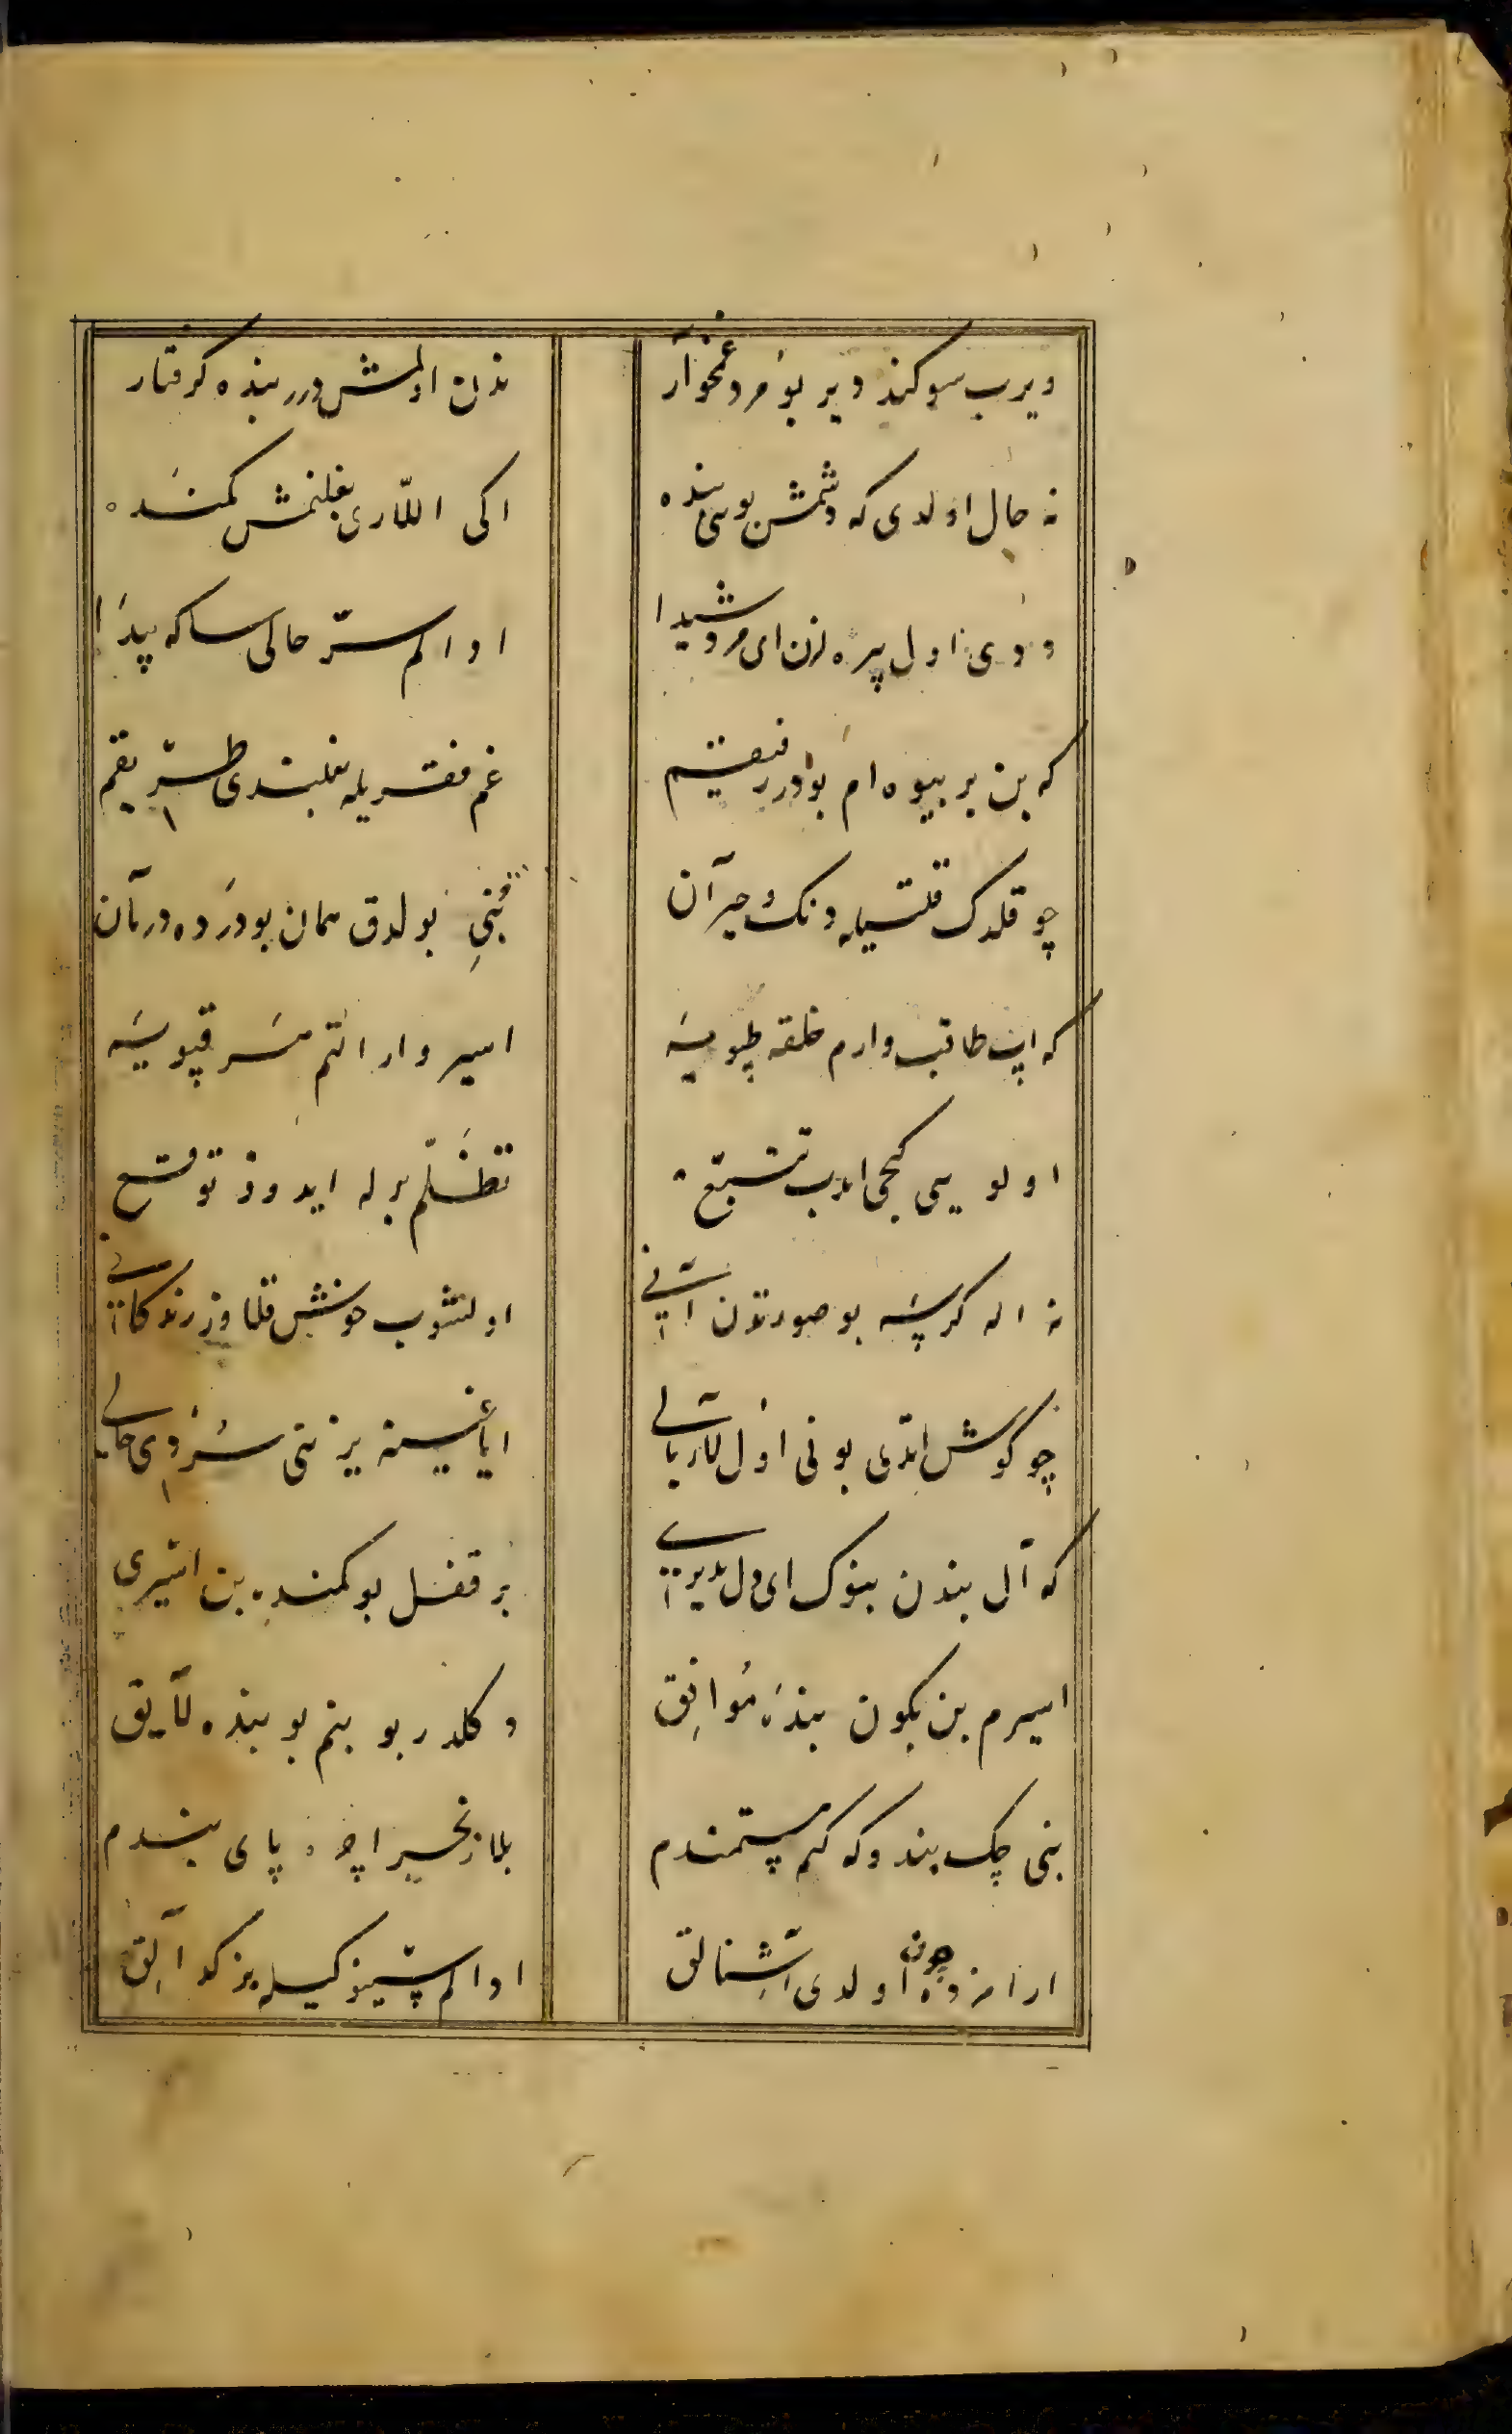 ویرب سوکند دیر بو مرد غمخوار ندن اولمش درر بنده کرفتار
نه حال اولدی که دشمش بویله بنده اکی اللری بغلنمش کمنده
ددی اول پیره زن ای مرد شیدا اوا لم سر حالی ساکه پیدا
که بن بر بیوه ام بودر رفیقم غم فقریله بغلندی طریقم
چو قلدک قلتیله دنک و حیران بنی بولدق همان بو درده درمان
که ایپ طاقب وارم خلقه طپویه اسیر وار اتم هر قپویه
اولو یی کجی ایدب تتبع تظلم بوله ایدوز توقع
نه اله کرسه بو صورتدن آنی اولشوب خوش قلاوز زندکانی
چو کوش اتدی بونی اول لاابالی ایاغینه یوز سردی حالی
که آل بندن بنوک ای دل بو قفل بو کمند بن اسیری
اسیرم بن بکون بنده موافق دکلدر بو بنم بو بنده لایق
بنی چک بنده که کم مستمندم بلا زنجیر اچره پای بندم
ارامزده چون اولدی آشنالق اوا لم سنوکیله بز کدالق